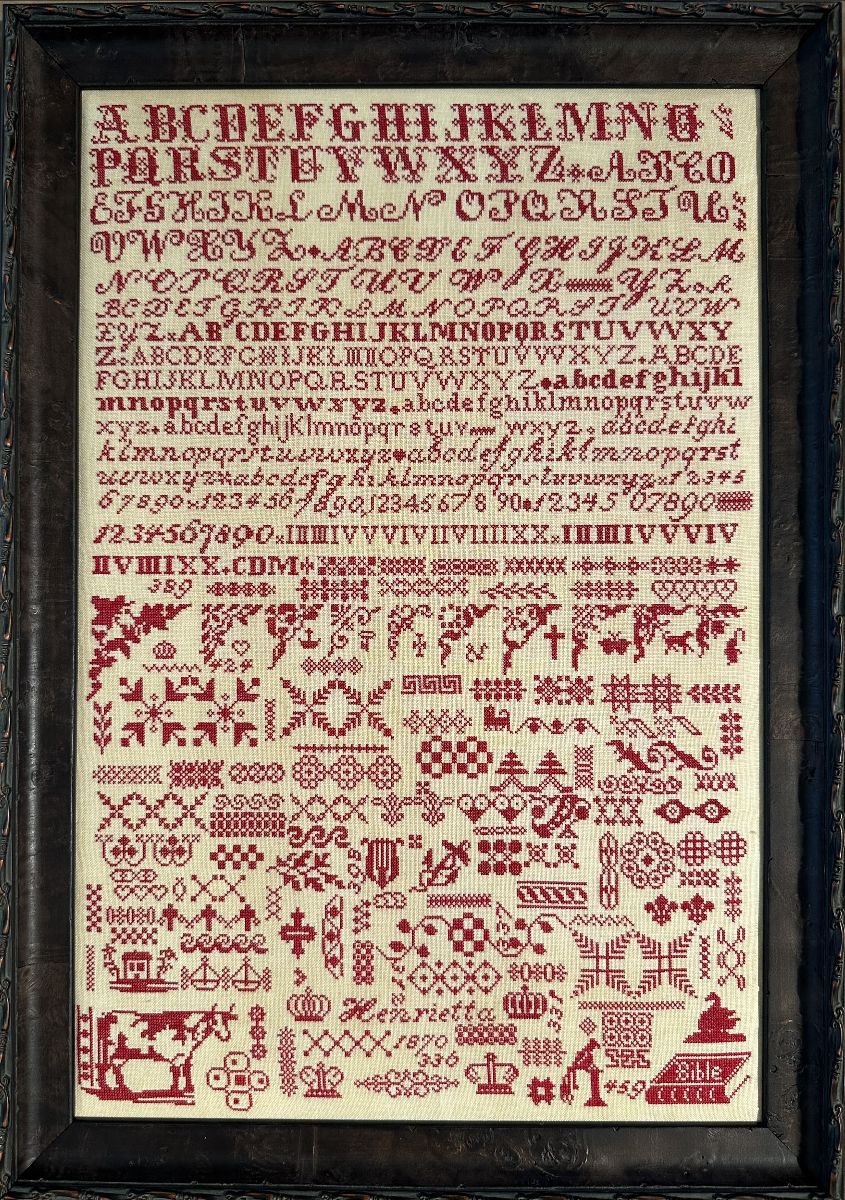 ABCDEFGHIJKLMNO
PQRSTUVWXYZ*ABCD
EFGHIKLMNOPQRSTU
VWXYZ•ABCDEFGHIJKLM
NOPQRSTUVWXYZ.A
BCDEFGHIKLMNOPQRSTUVW
XYZ.ABCDEFGHIJKLMNOPQRSTUVWXY
Z.ABCDEFGHIJKLMNOPQRSTUVWXYZ.ABCDE
FGHIJKLMNOPQRSTUVWXYZ.abcdefghijkl
mnopqrstuvwxyz.abcdefghiklmnopqrstuvw
xyz.abcdefghijklmnopqrstuv wxyz.abcdefghi
klmnopqrstuvwxyz♥abcdefghiklmnopqrst
uvwxyz abcdefghiklmnopqrstuvwxyz.12345
67890.1234567890.1234567890.1234567890
1234567890.IIIIIIIVVVIVIIVIIIIXX.IIIIIIIVVVIV
IIVIIIIXX.CDM
389
424
305
Henrietta
331
1870
336
Bible
459